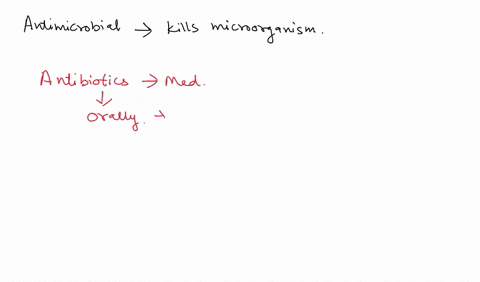 Antimicrobial → kills microorganism.
Antibiotics → Med.
↓
Orally.